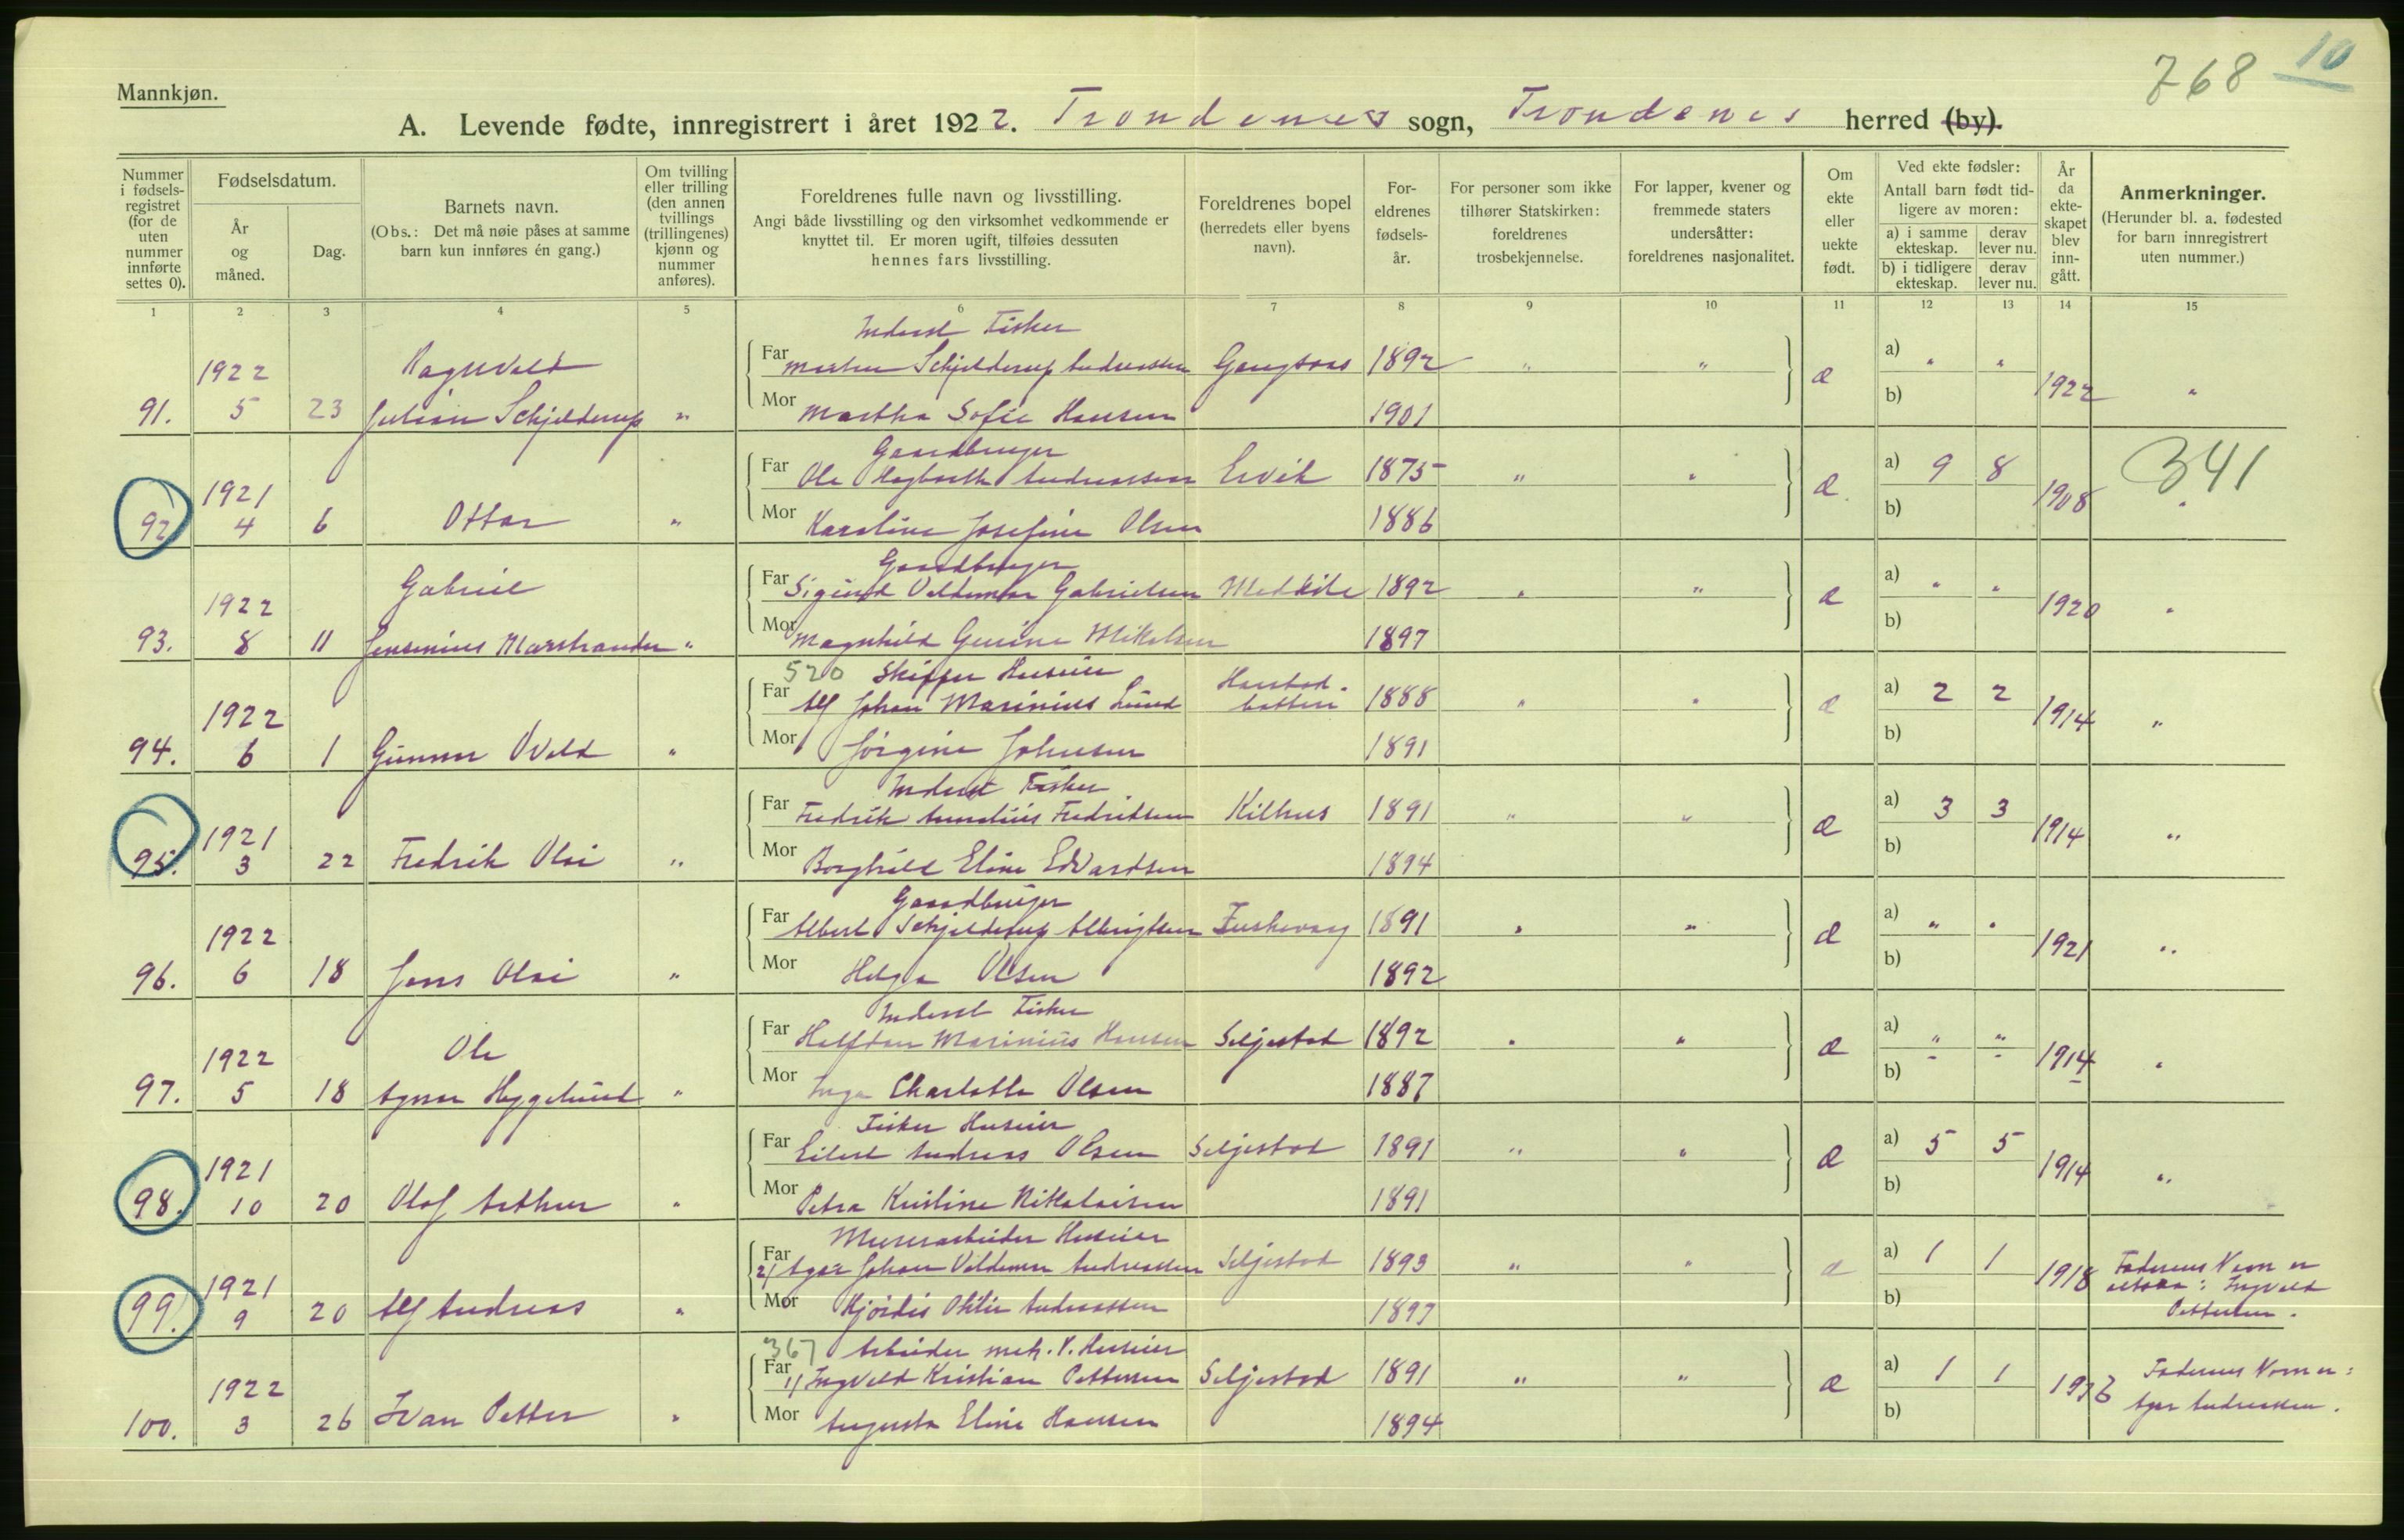 768 10
Mannkjøn.
A. Levende fødte, innregistrert i året 1922. Trondenes sogn, Trondenes herred (by).
Nummer i fødsels-registret (for de uten nummer innførte settes 0).
Fødselsdatum.
År og måned.
Dag.
Barnets navn.
(Obs.: Det må nøie påses at samme barn kun innføres én gang.)
Om tvilling eller trilling (den annen tvillings (trillingenes) kjønn og nummer anføres).
Foreldrenes fulle navn og livsstilling.
Angi både livsstilling og den virksomhet vedkommende er knyttet til. Er moren ugift, tilføies dessuten hennes fars livsstilling.
Foreldrenes bopel (herredets eller byens navn).
For-eldrenes fødsels-år.
For personer som ikke tilhører Statskirken: foreldrenes trosbekjennelse.
For lapper, kvener og fremmede staters undersåtter: foreldrenes nasjonalitet.
Om ekte eller uekte født.
Ved ekte fødsler:
Antall barn født tid-ligere av moren:
a) i samme ekteskap. derav lever nu.
b) i tidligere ekteskap. derav lever nu.
År da ekte-skapet blev inn-gått.
Anmerkninger.
(Herunder bl. a. fødested for barn innregistrert uten nummer.)
1 2 3 4 5 6 7 8 9 10 11 12 13 14 15
Inderst Fisker
1922 Ragnvald Far Morten Schjelderup Andreassen Gangsaas 1892 " " æ a) " " 1922 "
91. 5 23 Julian Schjelderup " Mor Martha Sofie Hansen 1901 b)
Gaardbruger
1921 Far Ole Hagbarth Andreassen Ervik 1875 " " æ a) 9 8 1908 341
92 4 6 Ottar " Mor Karoline Josefine Olsen 1886 b) "
Gaardbruger
1922 Gabriel Far Sigurd Valdemar Gabrielsen Medkile 1892 " " æ a) " " 1920 "
93. 8 11 Jensenius Marstrander " Mor Magnhild Gurine Mikalsen 1897 b)
520 Skipper Huseier
1922 Far Alf Johan Marinius Lund Harstad-botten 1888 " " æ a) 2 2 1914 "
94. 6 1 Gunnar Vald " Mor Jørgine Johnsen 1891 b)
Inderst Fisker
1921 Far Fredrik Amandus Fredriksen Kilhus 1891 " " æ a) 3 3 1914 "
95. 3 22 Fredrik Olai " Mor Borghild Eline Edvardsen 1894 b)
Gaardbruger
1922 Far Albert Schjelderup Albrigtsen 1891 " " æ a) " " 1921 "
96. 6 18 Jens Olai " Mor Helga Olsen 1892 b)
Inderst Fisker
1922 Ole Far Halfdan Marinius Hansen Seljestad 1892 " " æ a) " " 1914 "
97. 5 18 Agnar Hyggelund " Mor Inga Charlotte Olsen 1887 b)
Fisker Huseier
1921 Far Eilert Andreas Olsen Seljestad 1891 " " æ a) 5 5 1914 "
98. 10 20 Olaf Arthur " Mor Petra Kristine Nikolaisen 1891 b)
Murerarbeider Huseier
1921 Far 2) Johan Valdemar Andreassen Seljestad 1893 " " æ a) 1 1 1918 Faderens Navn er
99. 9 20 Alf Andreas " Mor Hjørdis Otilie Andreassen 1897 b) altsaa: Ingvald
Pettersen.
367 Arbeider mek. V. Huseier
1922 Far 1) Ingvald Kristian Pettersen Seljestad 1891 " " æ a) 1 1 Faderens Navn er:
100. 3 26 Ivar Petter " Mor Augusta Eline Hansen 1894 b) Andreassen.